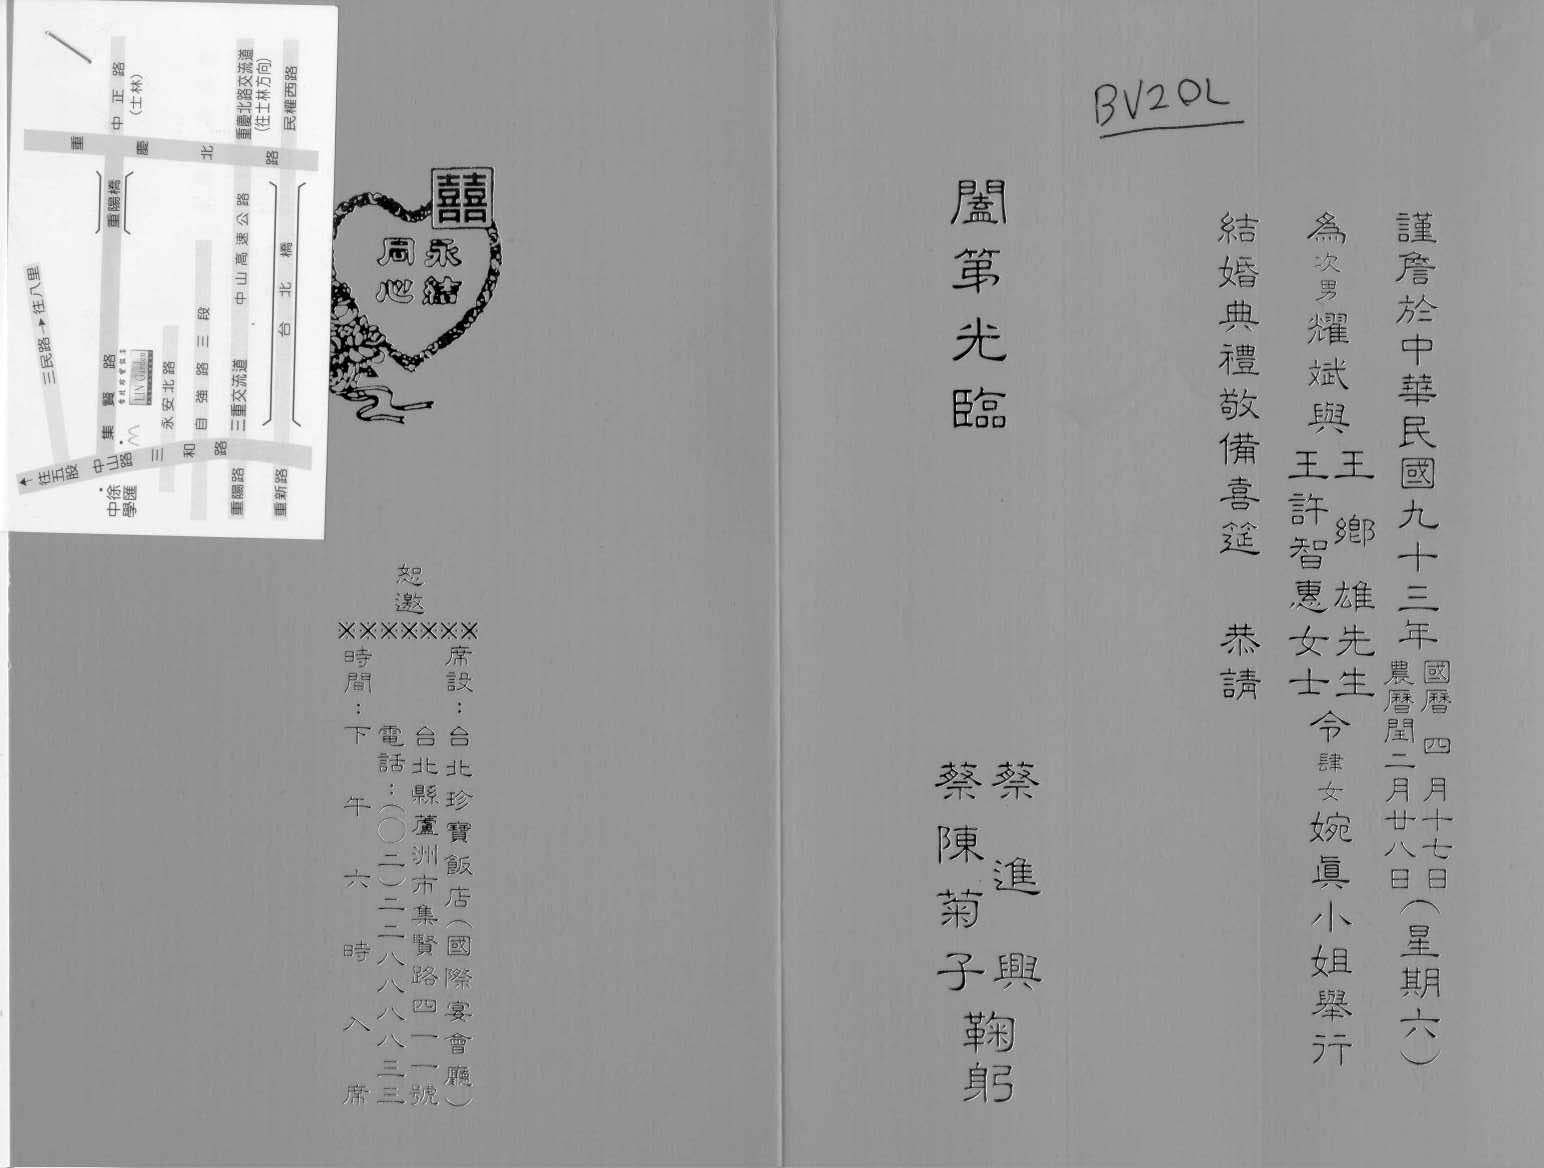 BV20L
謹詹於中華民國九十三年國曆四月十七日(星期六)
農曆閏二月廿八日
為次男耀斌與王鄉雄先生令肆女婉眞小姐舉行
王許智惠女士
結婚典禮敬備喜筵 恭請
闔第光臨
蔡進興
蔡陳菊子
鞠躬
囍
永結
同心
恕邀
※※※※※※※
席設:台北珍寶飯店(國際宴會廳)
台北縣蘆洲市集賢路四一一號
電話:(〇二)二二八八八八三三
時間:下午六時入席
中正路
(士林)
重慶北路交流道
(往士林方向)
民權西路
重慶北路
重陽橋
中山高速公路
台北橋
三民路→往八里
集賢路
永安北路
自強路三段
三重交流道
↑往五股
中山路
三和路
徐匯
中學
重陽路
重新路